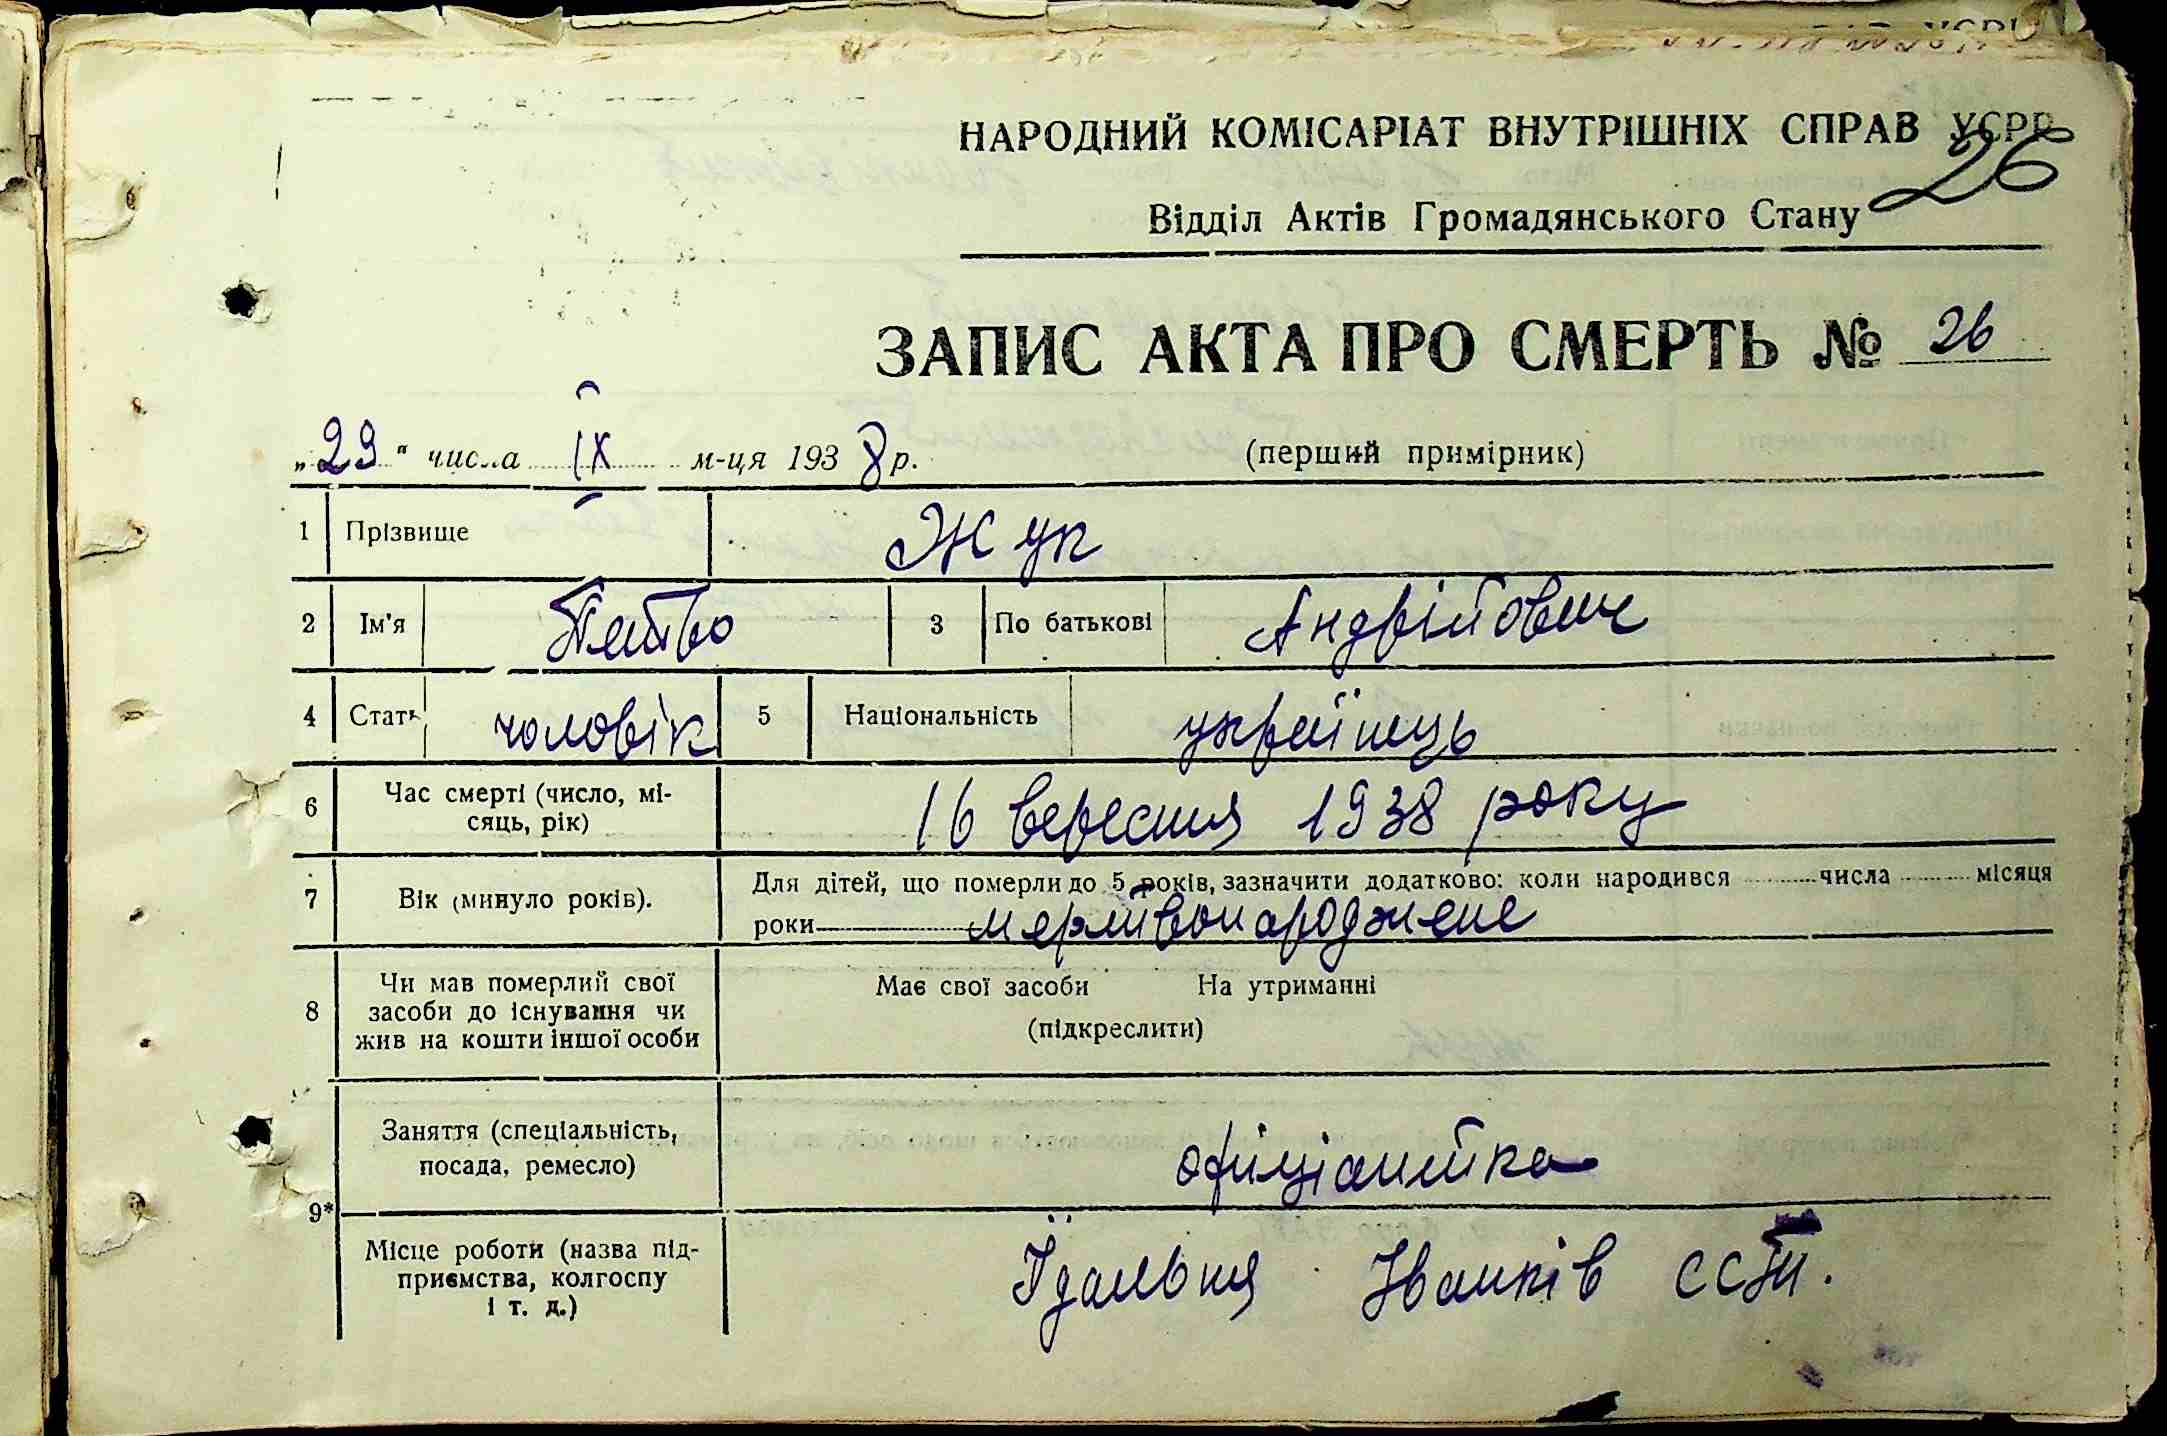 НАРОДНИЙ КОМІСАРІАТ ВНУТРІШНІХ СПРАВ УСРР
26
Відділ Актів Громадянського Стану
ЗАПИС АКТА ПРО СМЕРТЬ № 26
„29“ числа IX м-ця 1938 р. (перший примірник)
1 Прізвище Жук
2 Ім'я 3 По батькові Андрійович
4 Стать чоловік 5 Національність українець
6 Час смерті (число, мі-
сяць, рік) 16 вересня 1938 року
7 Вік (минуло років). Для дітей, що померли до 5 років, зазначити додатково: коли народився числа місяця
роки мертвонароджене
8 Чи мав померлий свої
засоби до існування чи
жив на кошти іншої особи
Має свої засоби На утриманні
(підкреслити)
9* Заняття (спеціальність,
посада, ремесло) офиціантка
Місце роботи (назва під-
приємства, колгоспу
і т. д.) Їдальня Іванків